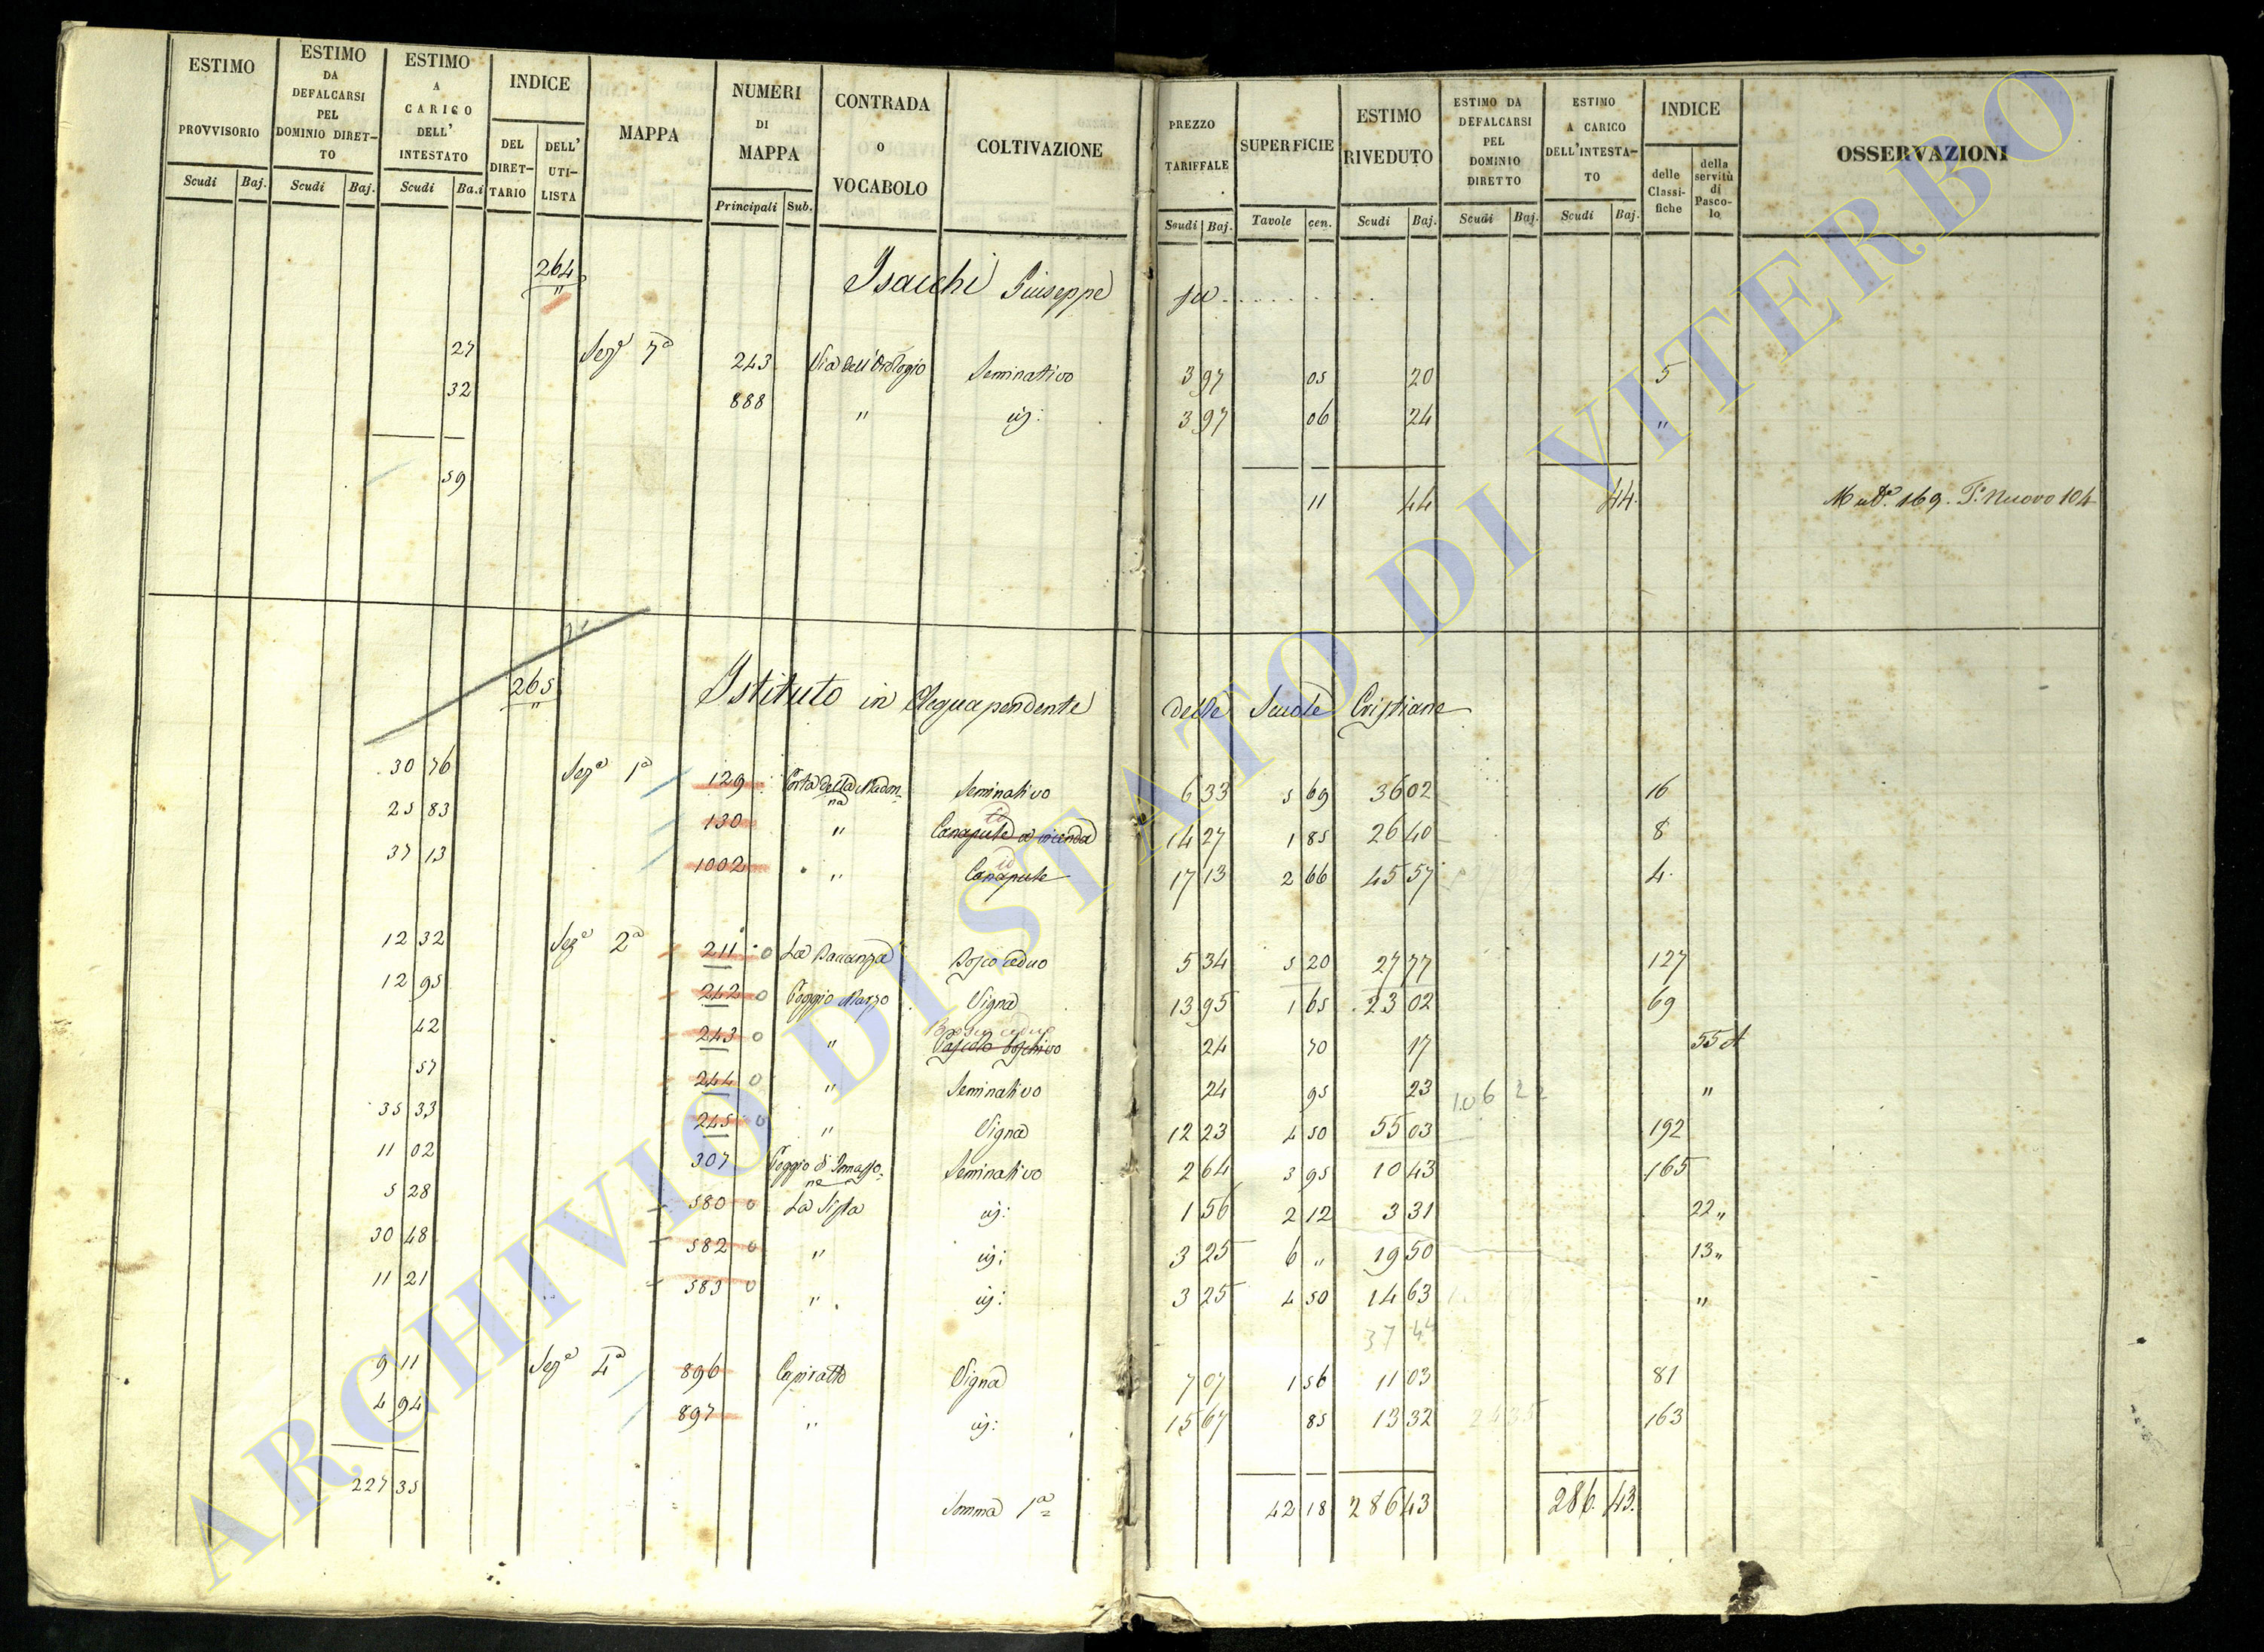 ESTIMO PROVVISORIO Scudi Baj.
ESTIMO DA DEFALCARSI PEL DOMINIO DIRETTO Scudi Baj.
ESTIMO A CARICO DELL' INTESTATO Scudi Ba.i
INDICE DEL DIRETTARIO DELL' UTILISTA
MAPPA
NUMERI DI MAPPA Principali Sub.
CONTRADA O VOCABOLO
COLTIVAZIONE
PREZZO TARIFFALE Scudi Baj.
SUPERFICIE Tavole cen.
ESTIMO RIVEDUTO Scudi Baj.
ESTIMO DA DEFALCARSI PEL DOMINIO DIRETTO Scudi Baj.
ESTIMO A CARICO DELL'INTESTATO Scudi Baj.
INDICE delle Classifiche della servitù di Pascolo
OSSERVAZIONI
264 Isacchi Giuseppe fu . . . . . . . . . .
"
27 Sezᵉ 7ª 243 Via dell'Orologio Seminativo 3 97 05 20 5
32 888 " 3 97 06 24 "
59 11 44 44. 169. Nuovo 104
265 Istituto in Acquapendente delle Scuole Cristiane
"
30 76 Sezᵉ 1ª 129 Porta della Madonna Seminativo 6 33 5 69 36 02 16
25 83 130 " Canapule a vicenda 14 27 1 85 26 40 8
37 13 1002 " Canapule 17 13 2 66 45 57 4
12 32 Sezᵉ 2ª 211 0 Bosco ceduo 5 34 5 20 27 77 127
12 95 242 0 Poggio Marzo Vigna 13 95 1 65 23 02 69
42 243 0 " Bosco ceduo Pascolo boschivo 24 70 17 55
57 244 0 " Seminativo 24 95 23 106 22 "
35 33 245 0 " Vigna 12 23 4 50 55 03 192
11 02 307 Seminativo 2 64 3 95 10 43 165
5 28 580 0 1 56 2 12 3 31 22 "
30 48 582 0 " 3 25 6 " 19 50 13 "
11 21 583 0 " 3 25 4 50 14 63 "
37 44
9 11 Sezᵉ 4ª 896 Vigna 7 07 1 56 11 03 81
4 94 897 " 15 67 85 13 32 24 35 163
227 35 Somma 1ª 42 18 286 43 286. 43.
ARCHIVIO DI STATO DI VITERBO